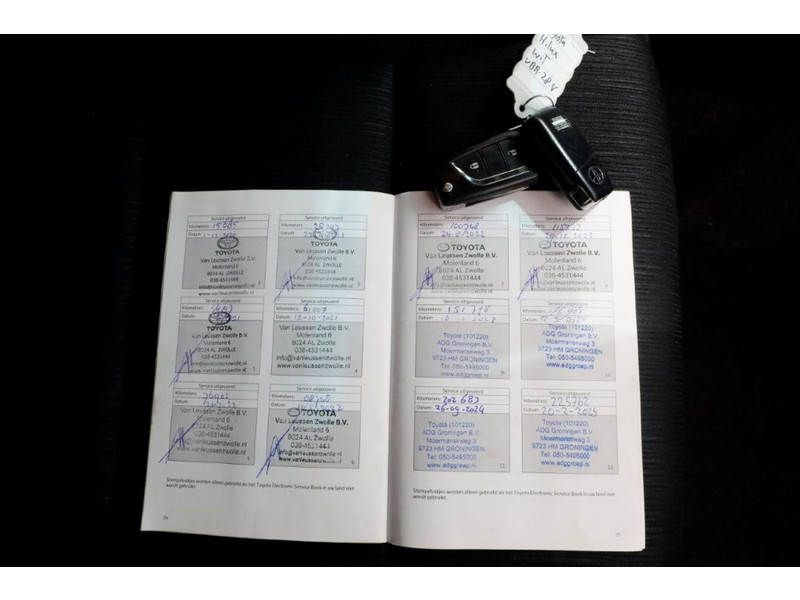 Hilux
WIT
Service uitgevoerd
Kilometers: 15.885
Datum:
TOYOTA
Van Leussen Zwolle B.V.
Molenland 6
8024 AL ZWOLLE
038-4531444
info@vanleussenzwolle.nl
www.vanleussenzwolle.nl
1
Service uitgevoerd
Kilometers:
Datum:
TOYOTA
Van Leussen Zwolle B.V.
Molenland 6
8024 AL ZWOLLE
038-4531444
info@vanleussenzwolle.nl
www.vanleussenzwolle.nl
2
Service uitgevoerd
Kilometers:
Datum:
TOYOTA
Van Leussen Zwolle B.V.
Molenland 6
8024 AL ZWOLLE
038-4531444
info@vanleussenzwolle.nl
3
Service uitgevoerd
Kilometers: 61007
Datum: 12-10-2021
Van Leussen Zwolle B.V.
Molenland 6
8024 AL ZWOLLE
038-4531444
info@vanleussenzwolle.nl
www.vanleussenzwolle.nl
4
Service uitgevoerd
Kilometers:
Datum:
Van Leussen Zwolle B.V.
Molenland 6
8024 AL ZWOLLE
038-4531444
info@vanleussenzwolle.nl
www.vanleussenzwolle.nl
5
Service uitgevoerd
Kilometers:
Datum:
TOYOTA
Van Leussen Zwolle B.V.
Molenland 6
8024 AL Zwolle
038-4531444
info@vanleussenzwolle.nl
www.vanleussenzwolle.nl
6
Stempelvakjes worden alleen gebruikt als het Toyota Electronic Service Book in uw land niet
wordt gebruikt.
Service uitgevoerd
Kilometers:
Datum:
TOYOTA
Van Leussen Zwolle B.V.
Molenland 6
8024 AL ZWOLLE
038-4531444
info@vanleussenzwolle.nl
www.vanleussenzwolle.nl
Service uitgevoerd
Kilometers:
Datum:
TOYOTA
Van Leussen Zwolle B.V.
Molenland 6
8024 AL ZWOLLE
038-4531444
info@vanleussenzwolle.nl
www.vanleussenzwolle.nl
Service uitgevoerd
Kilometers:
Datum:
Toyota (101220)
ADG Groningen B.V.
Moermanskweg 3
9723 HM GRONINGEN
Tel: 050-5495000
www.adggroep.nl
Service uitgevoerd
Kilometers:
Datum:
Toyota (101220)
ADG Groningen B.V.
Moermanskweg 3
9723 HM GRONINGEN
Tel: 050-5495000
www.adggroep.nl
Service uitgevoerd
Kilometers: 202.683
Datum: 26-09-2024
Toyota (101220)
ADG Groningen B.V.
Moermanskweg 3
9723 HM GRONINGEN
Tel: 050-5495000
www.adggroep.nl
11
Service uitgevoerd
Kilometers: 225762
Datum: 20-2-2025
Toyota (101220)
ADG Groningen B.V.
Moermanskweg 3
9723 HM GRONINGEN
Tel: 050-5495000
www.adggroep.nl
12
Stempelvakjes worden alleen gebruikt als het Toyota Electronic Service Book in uw land niet
wordt gebruikt.